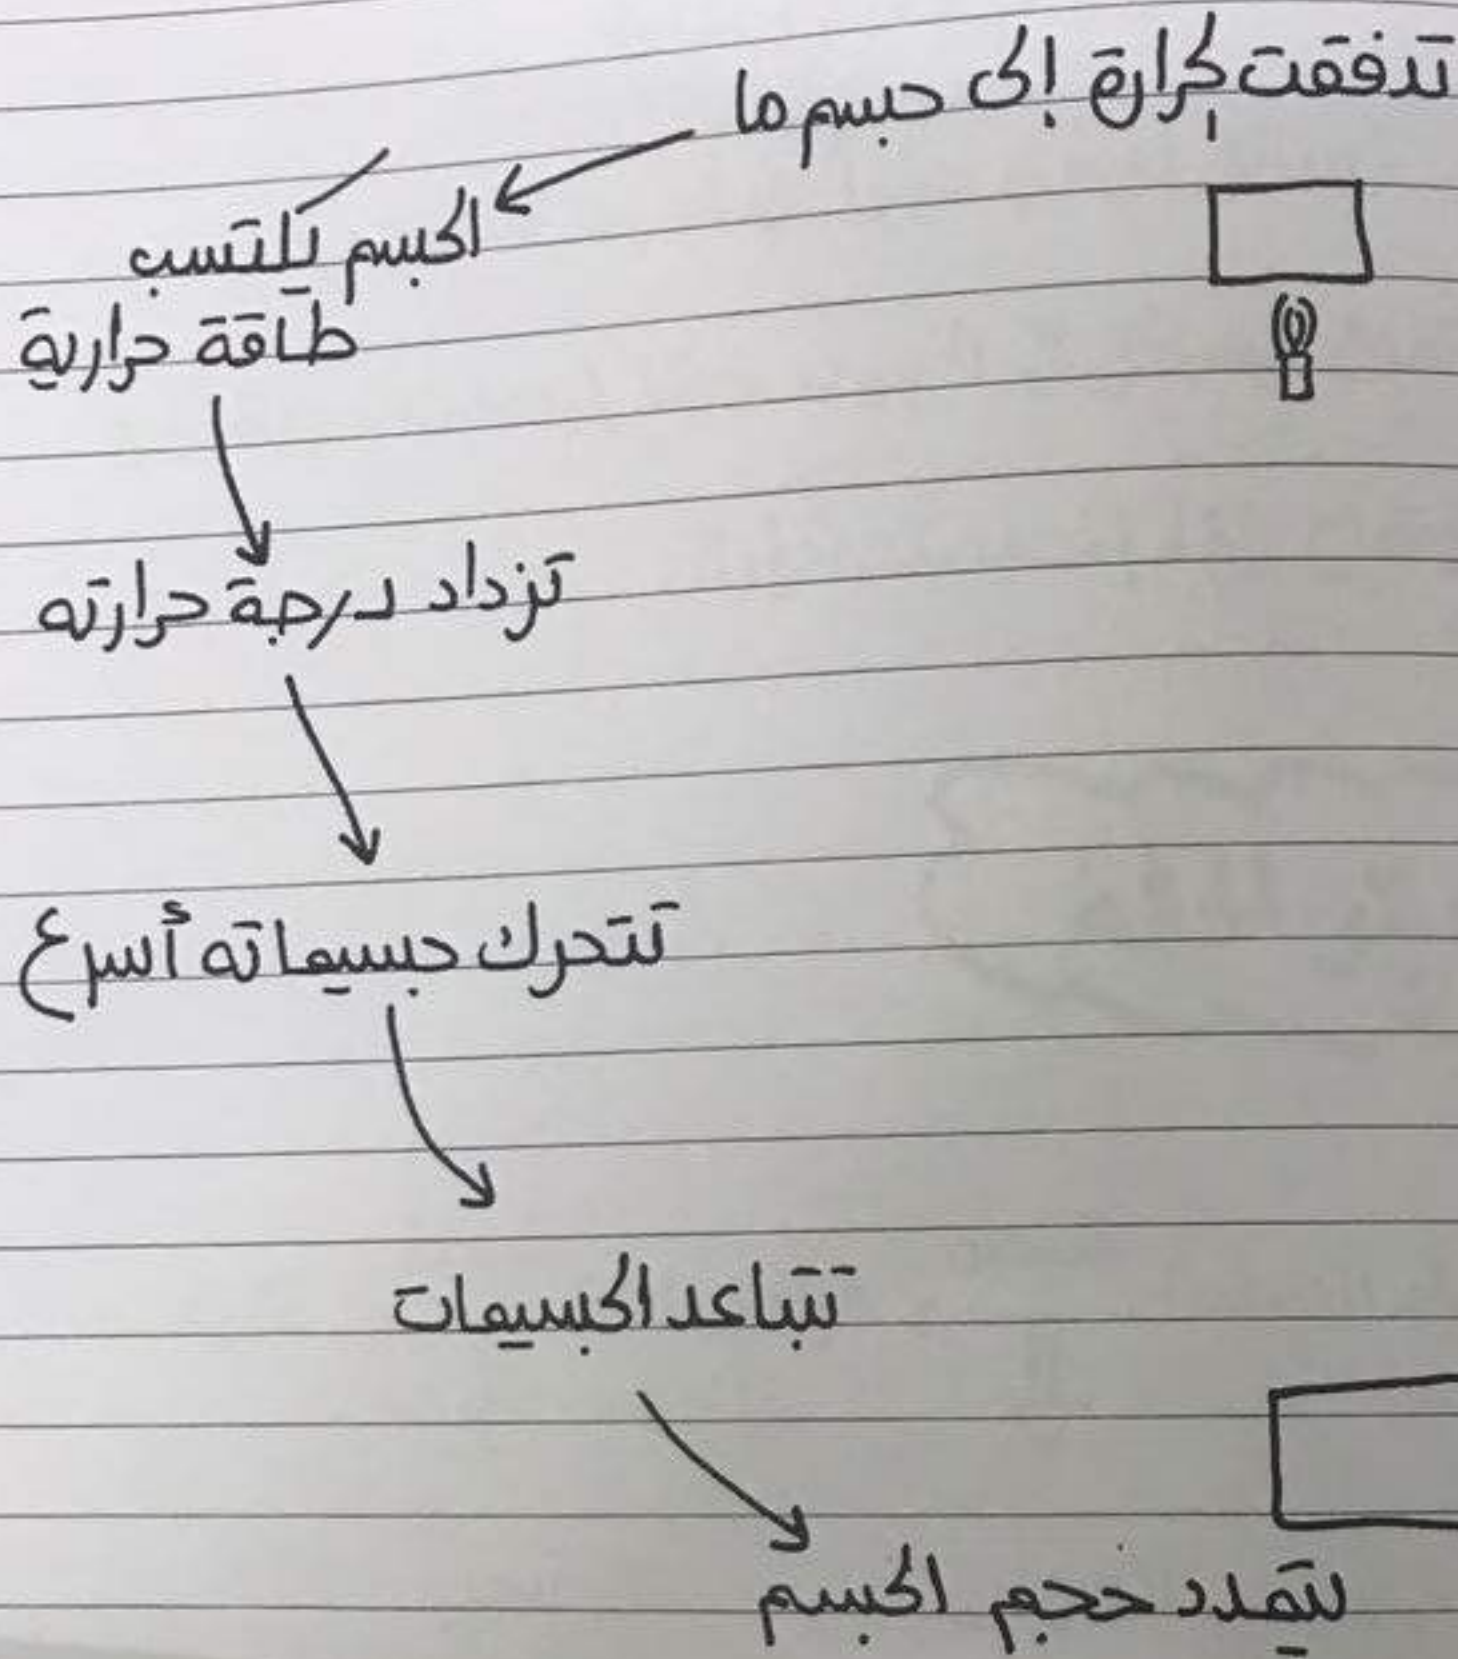 تدفقت الحرارة إلى جسم ما
الجسم يكتسب
طاقة حرارية
تزداد درجة حرارته
تتحرك جسيماته أسرع
تتباعد الجسيمات
يتمدد حجم الجسم